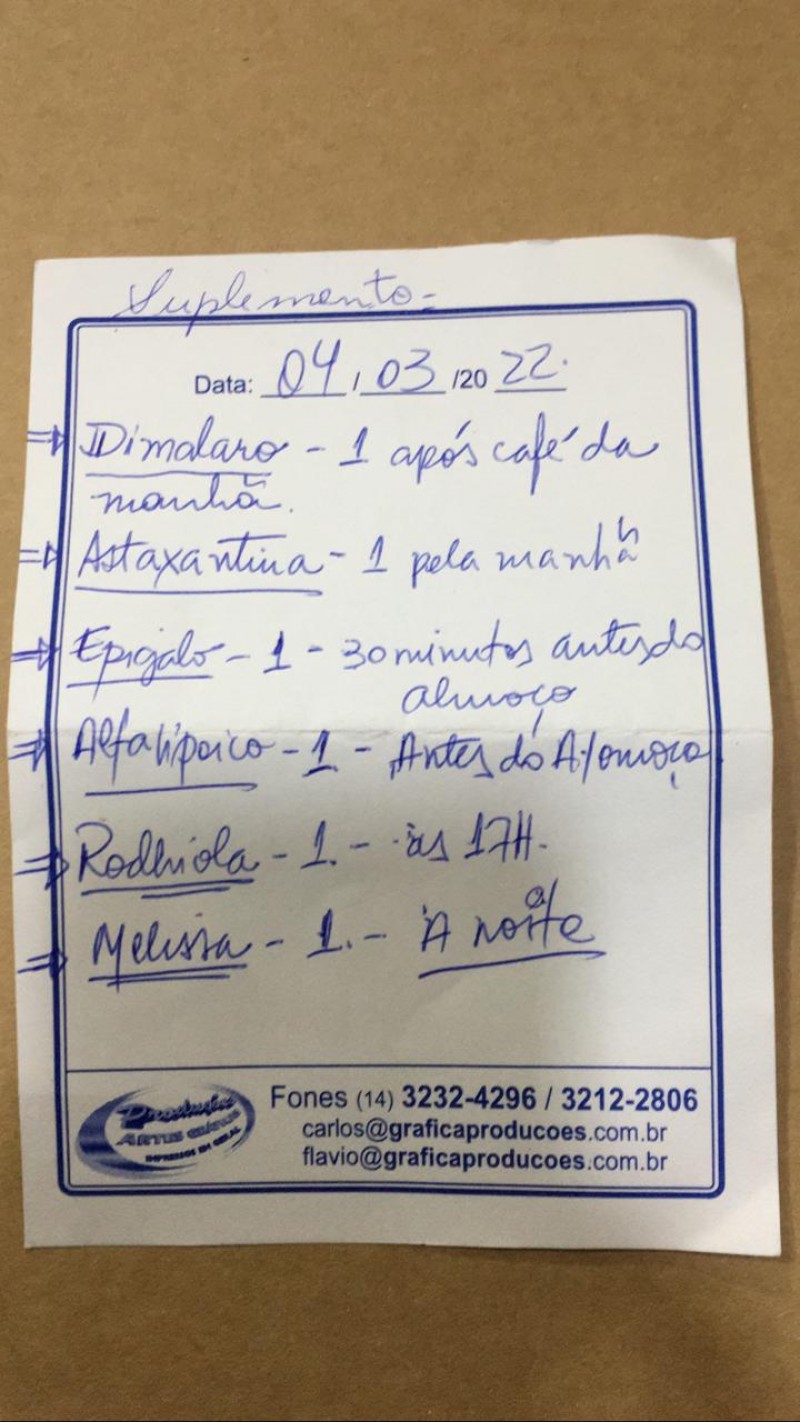 Suplemento-
Data: 04/03/2022.
⇒ Dimalaro - 1 após café da
manhã.
⇒ Astaxantina - 1 pela manhã
⇒ Epigalo - 1 - 30 minutos antes do
almoço
⇒ Alfalipoico - 1 - Antes do Almoço
⇒ Rodhiola - 1. - às 17H.
⇒ Melissa - 1. - À noite
Produção
ARTES GRÁFICAS
IMPRESSOS EM GERAL
Fones (14) 3232-4296 / 3212-2806
carlos@graficaproducoes.com.br
flavio@graficaproducoes.com.br